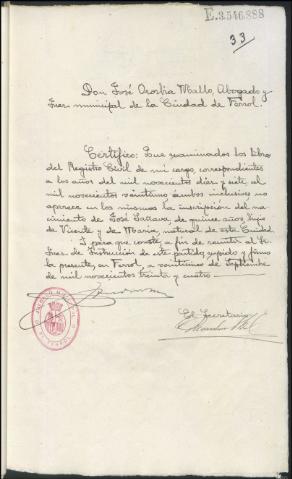 E.3.546.888
33
Don José Mallo, Abogado y
Juez municipal de la Ciudad de Ferrol.
Certifico: Que examinados los libros
del Registro Civil de mi cargo, correspondientes
a los años del mil novecientos diez y siete, al
mil novecientos veintiuno ambos inclusives no
aparece en los mismos la inscripción del na-
cimiento de José de quince años, hijo
de Vicente y de María, natural de esta Ciudad.
Y para que conste, a fin de remitir al Sr.
Juez de Instrucción de este partido, expido y firmo
la presente, en Ferrol, a veintiuno de Septiembre
de mil novecientos treinta y cuatro.—
El Secretario